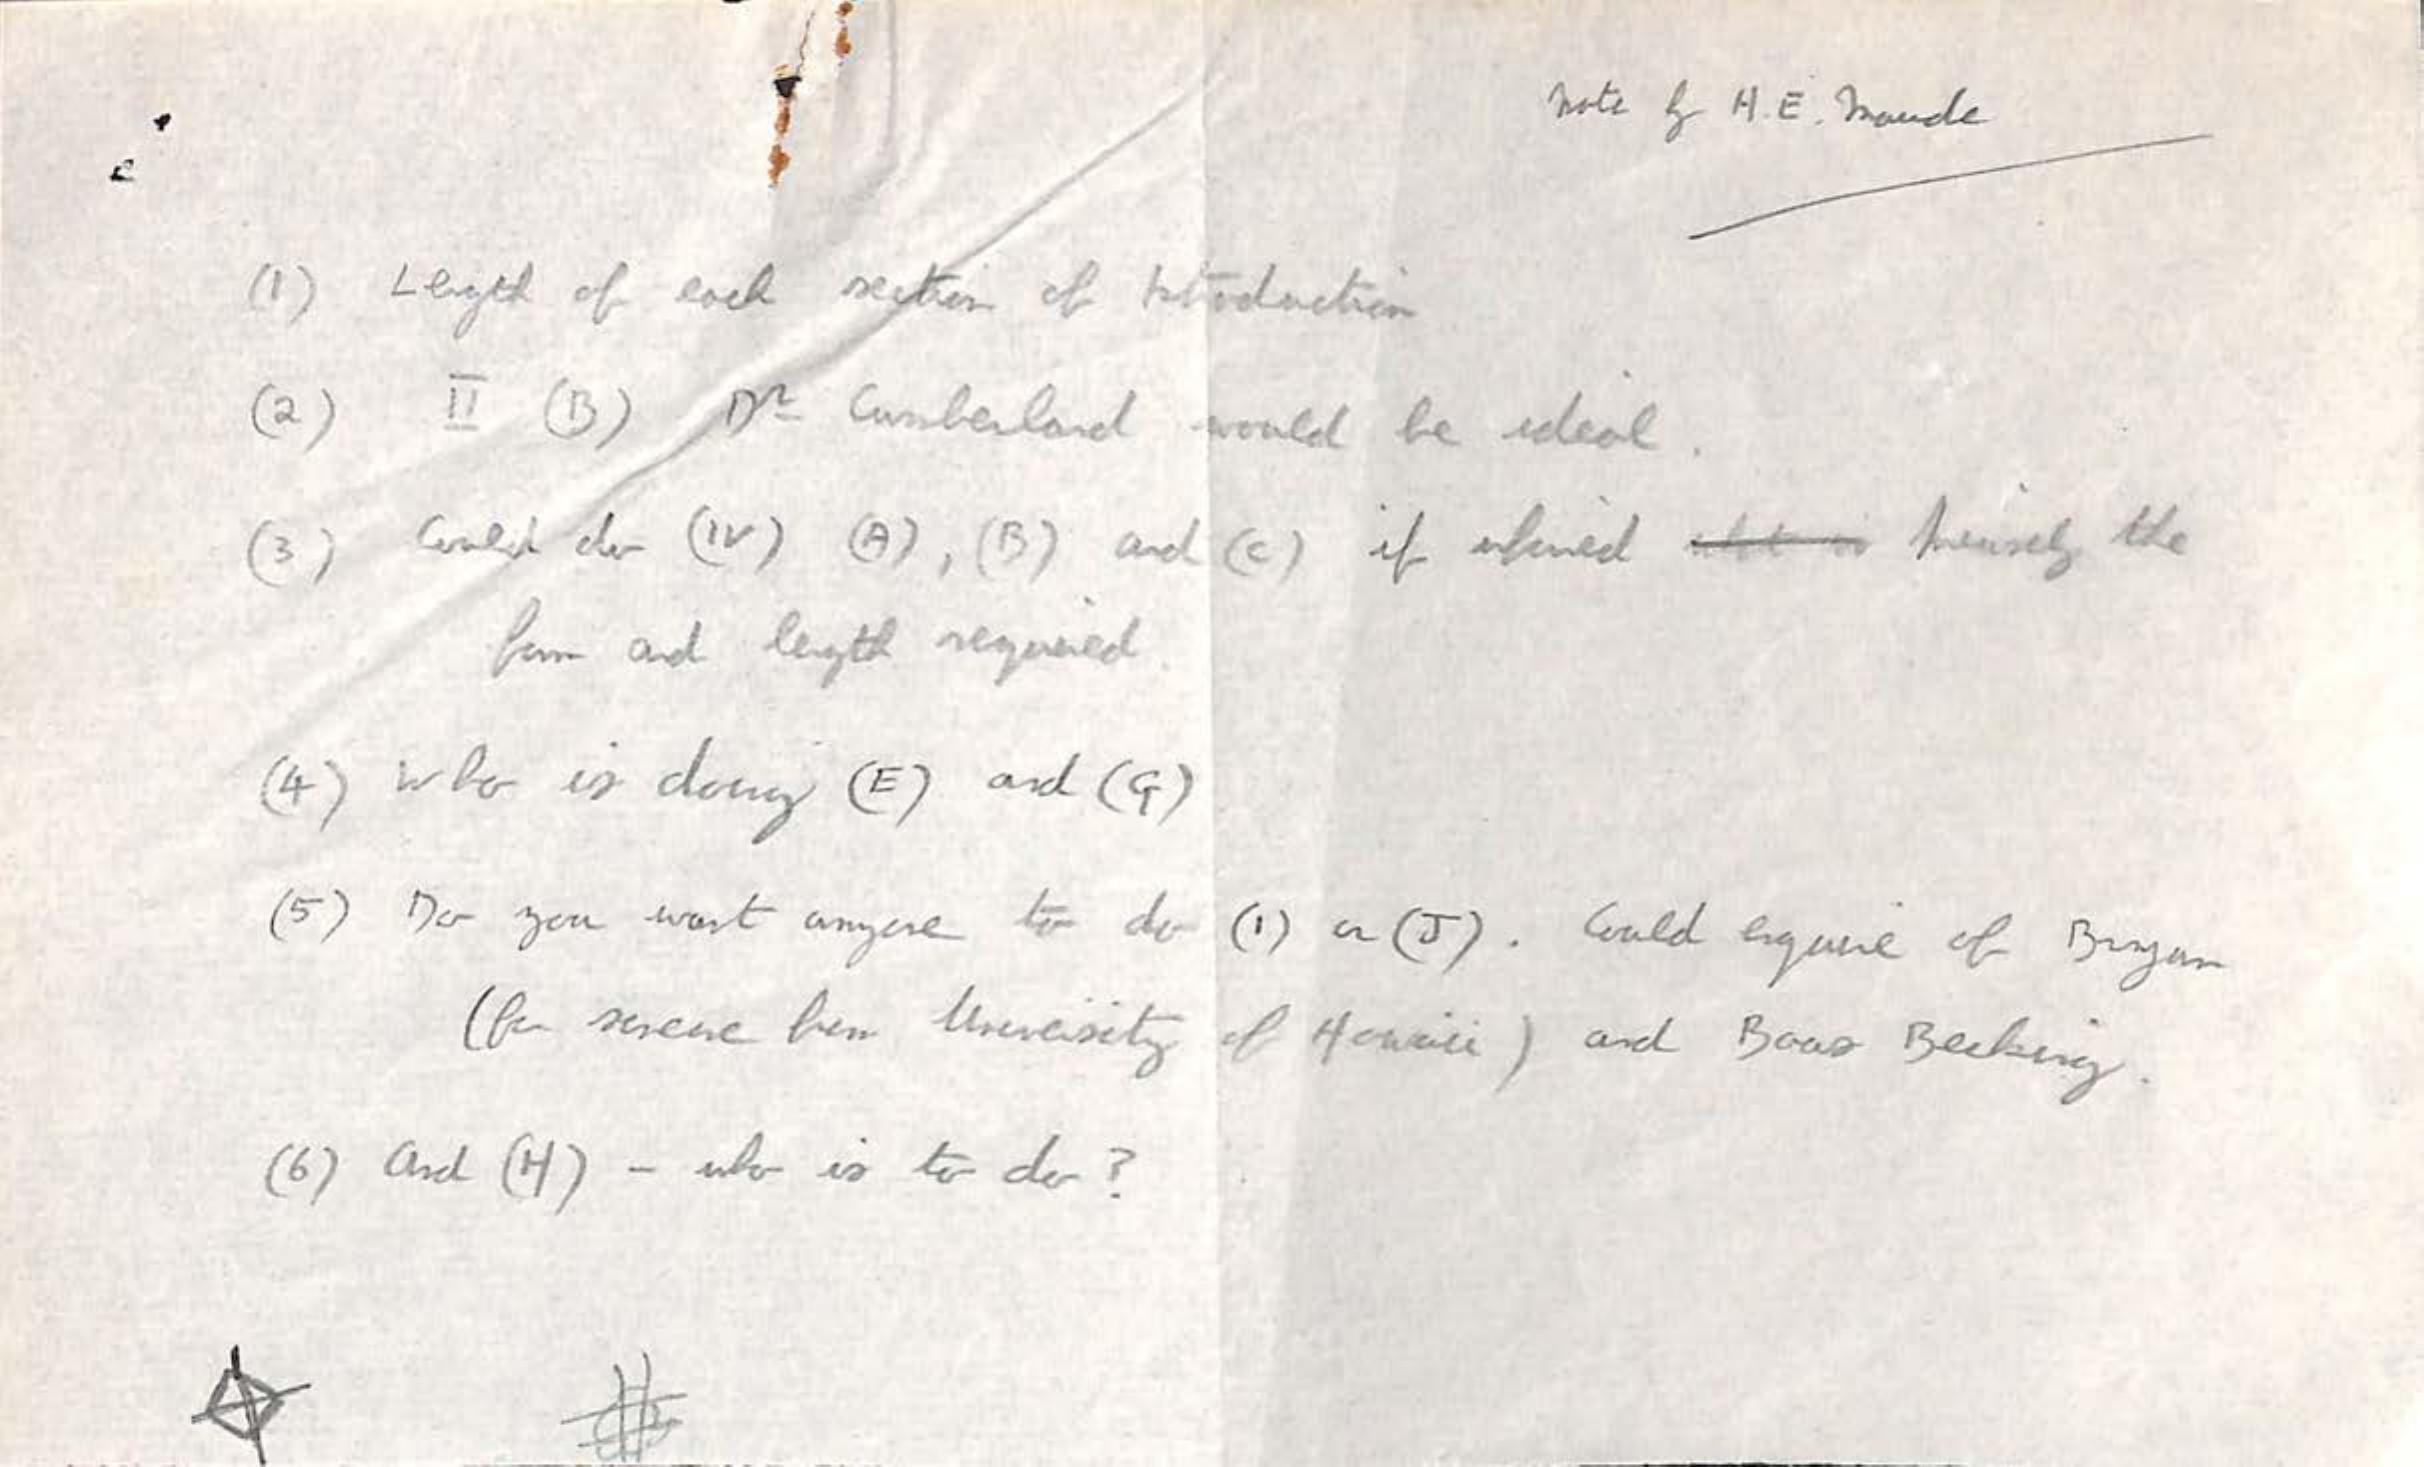 Note by H.E. Maude
(1) Length of each section of Introduction
(2) II (B) Dr Cumberland would be ideal.
(3) Could do (IV) (A), (B) and (C) if informed precisely the
form and length required.
(4) Who is doing (E) and (G)
(5) Do you want anyone to do (I) or (J). Could enquire of Bryan
(for someone from University of Hawaii) and Baas Becking.
(6) And (H) - who is to do?